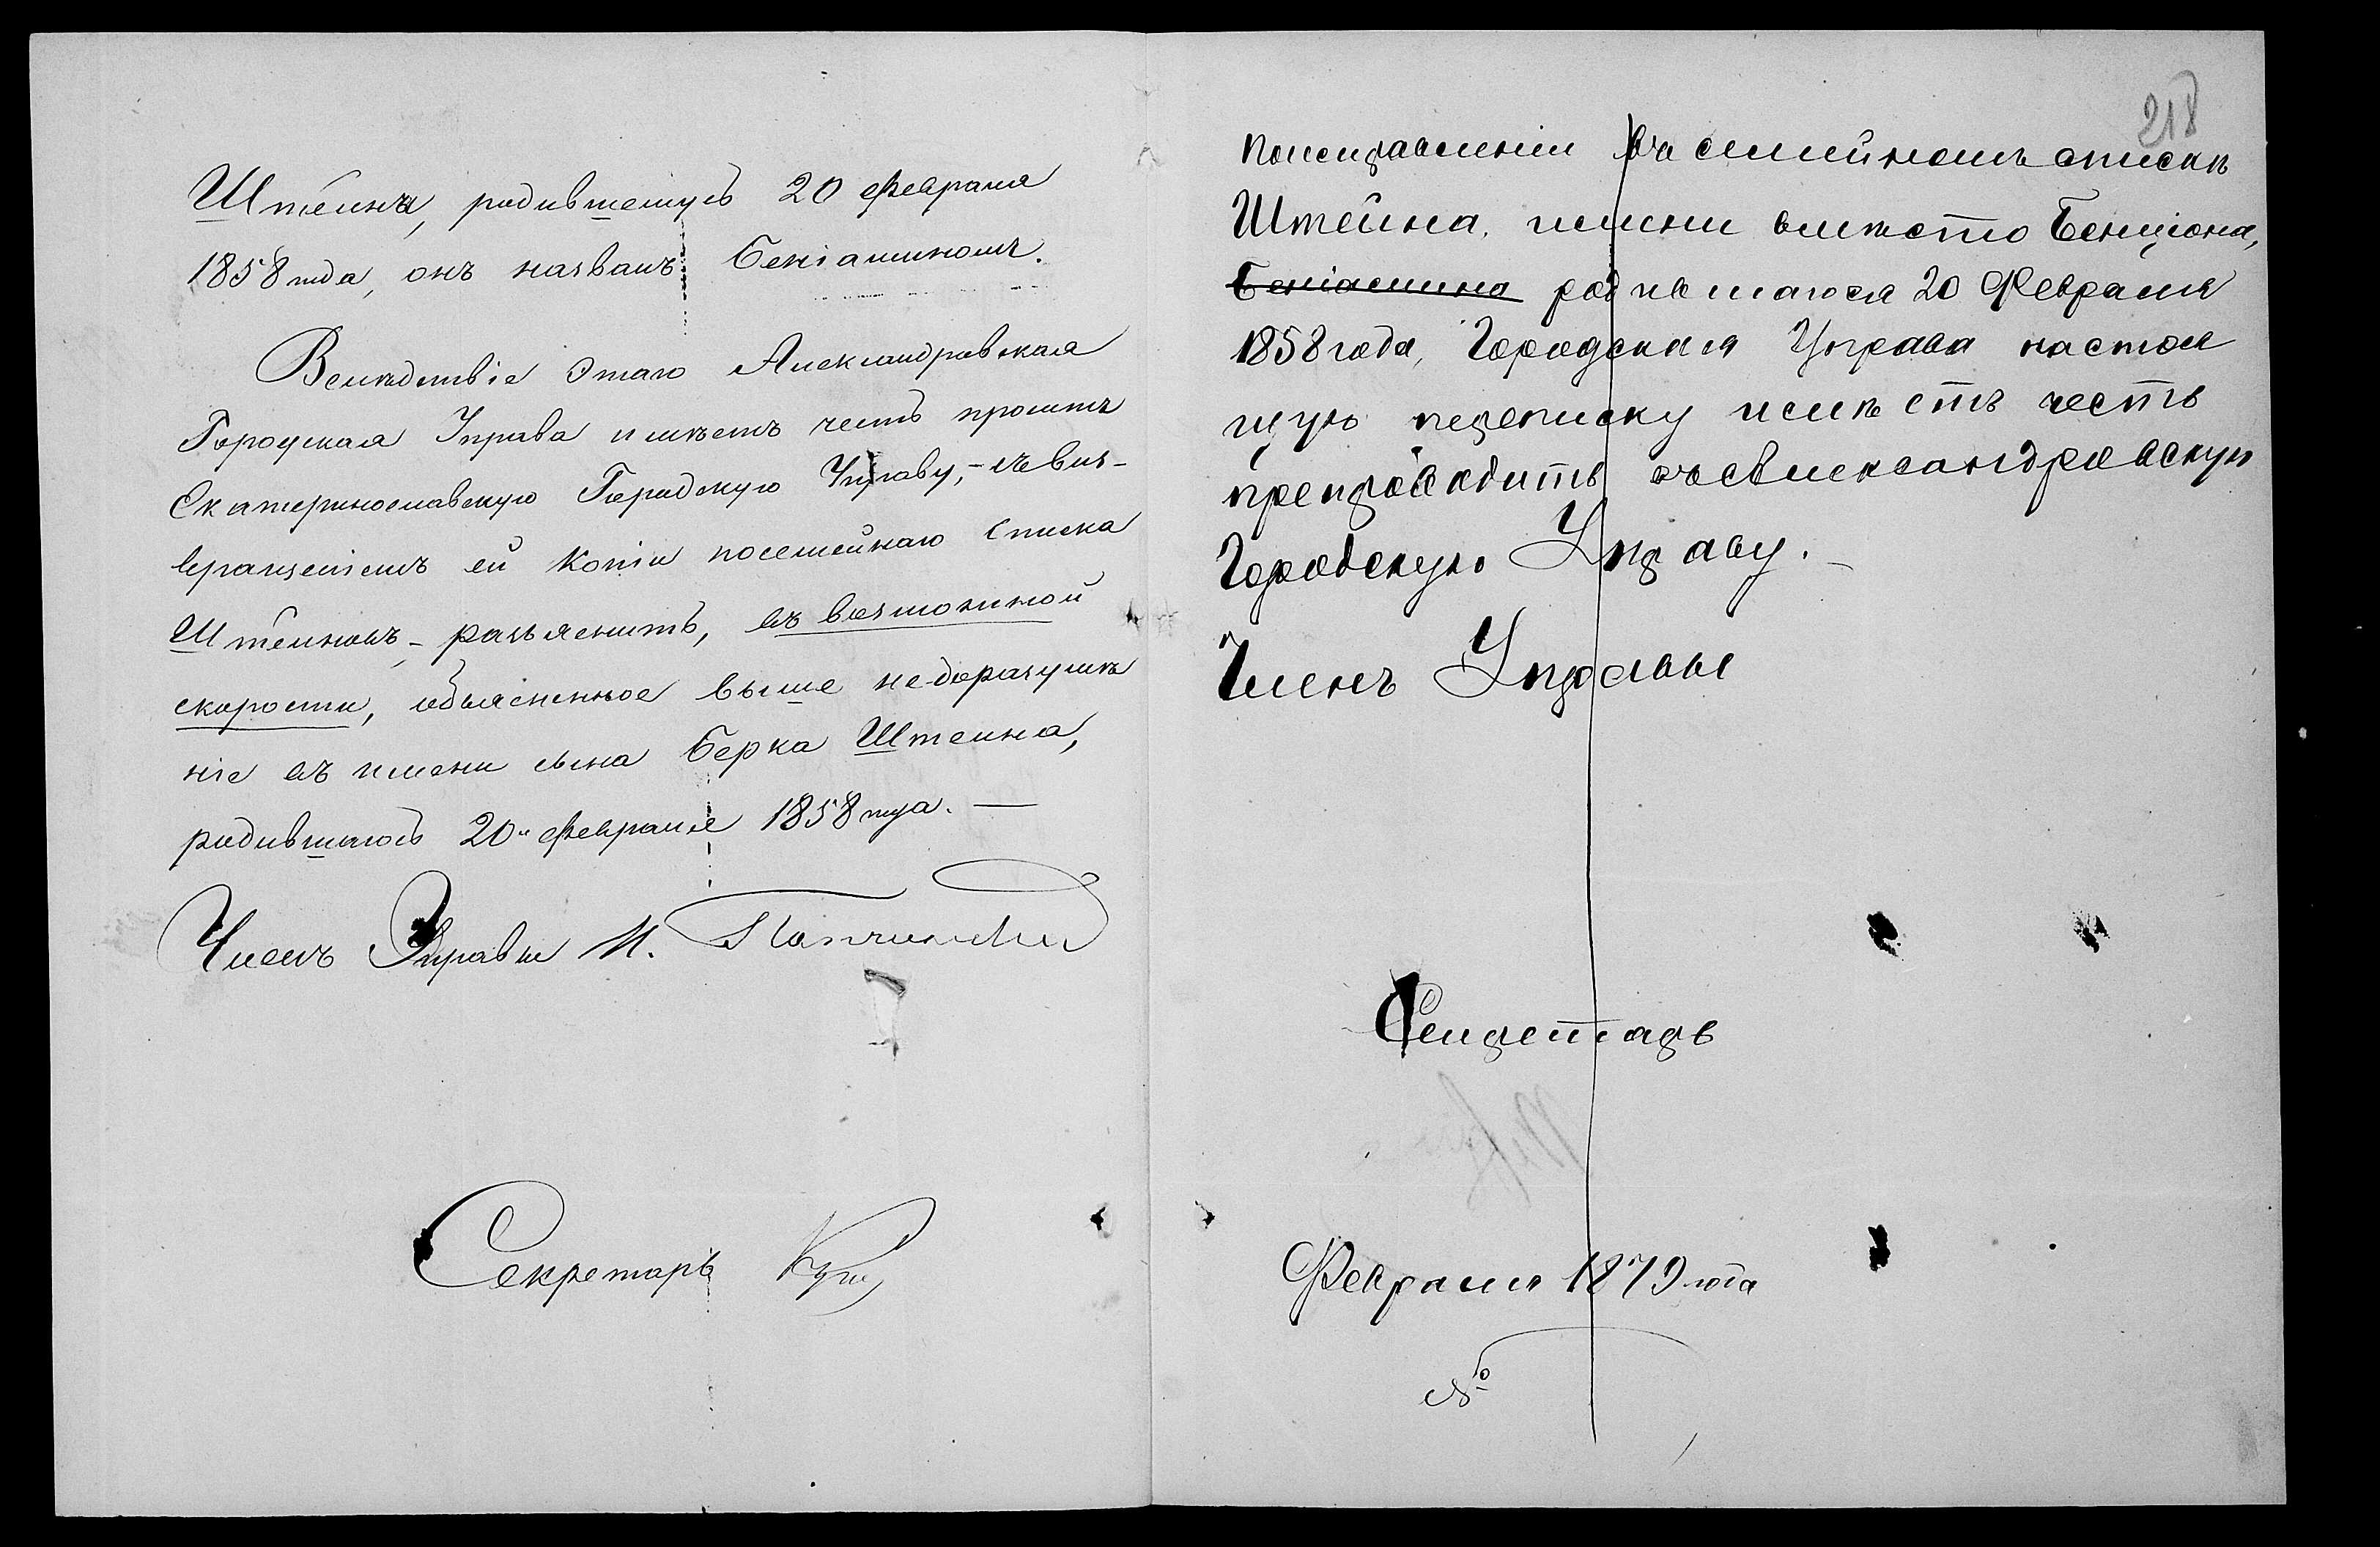 Штейна, родившемуся 20 февраля
1858 года, онъ названъ Беніаминомъ.
Вслѣдствіе этаго Александровская
Городская Управа имѣетъ честь просить
Екатеринославскую Городскую Управу, – съ воз-
вращеніемъ ей копіи посемейнаго списка
Штейновъ – разъяснить, въ возможной
скорости, объясненное выше недоразумѣ
ніе въ имени сына Берка Штейна,
родившагось 20го февраля 1858 года. —
Членъ Управы И.
Секретарь
218
Поисправленіи въ семейномъ спискѣ
Штейна, имени вмѣсто Бенціона,
Беніамина родившагося 20 Февраля
1858 года, Городская Управа настоя
щую переписку имѣетъ честь
препроводить въ Александровскую
Городскую Управу. –
Членъ Управы
Секретарь
Февраля 1879 года
№